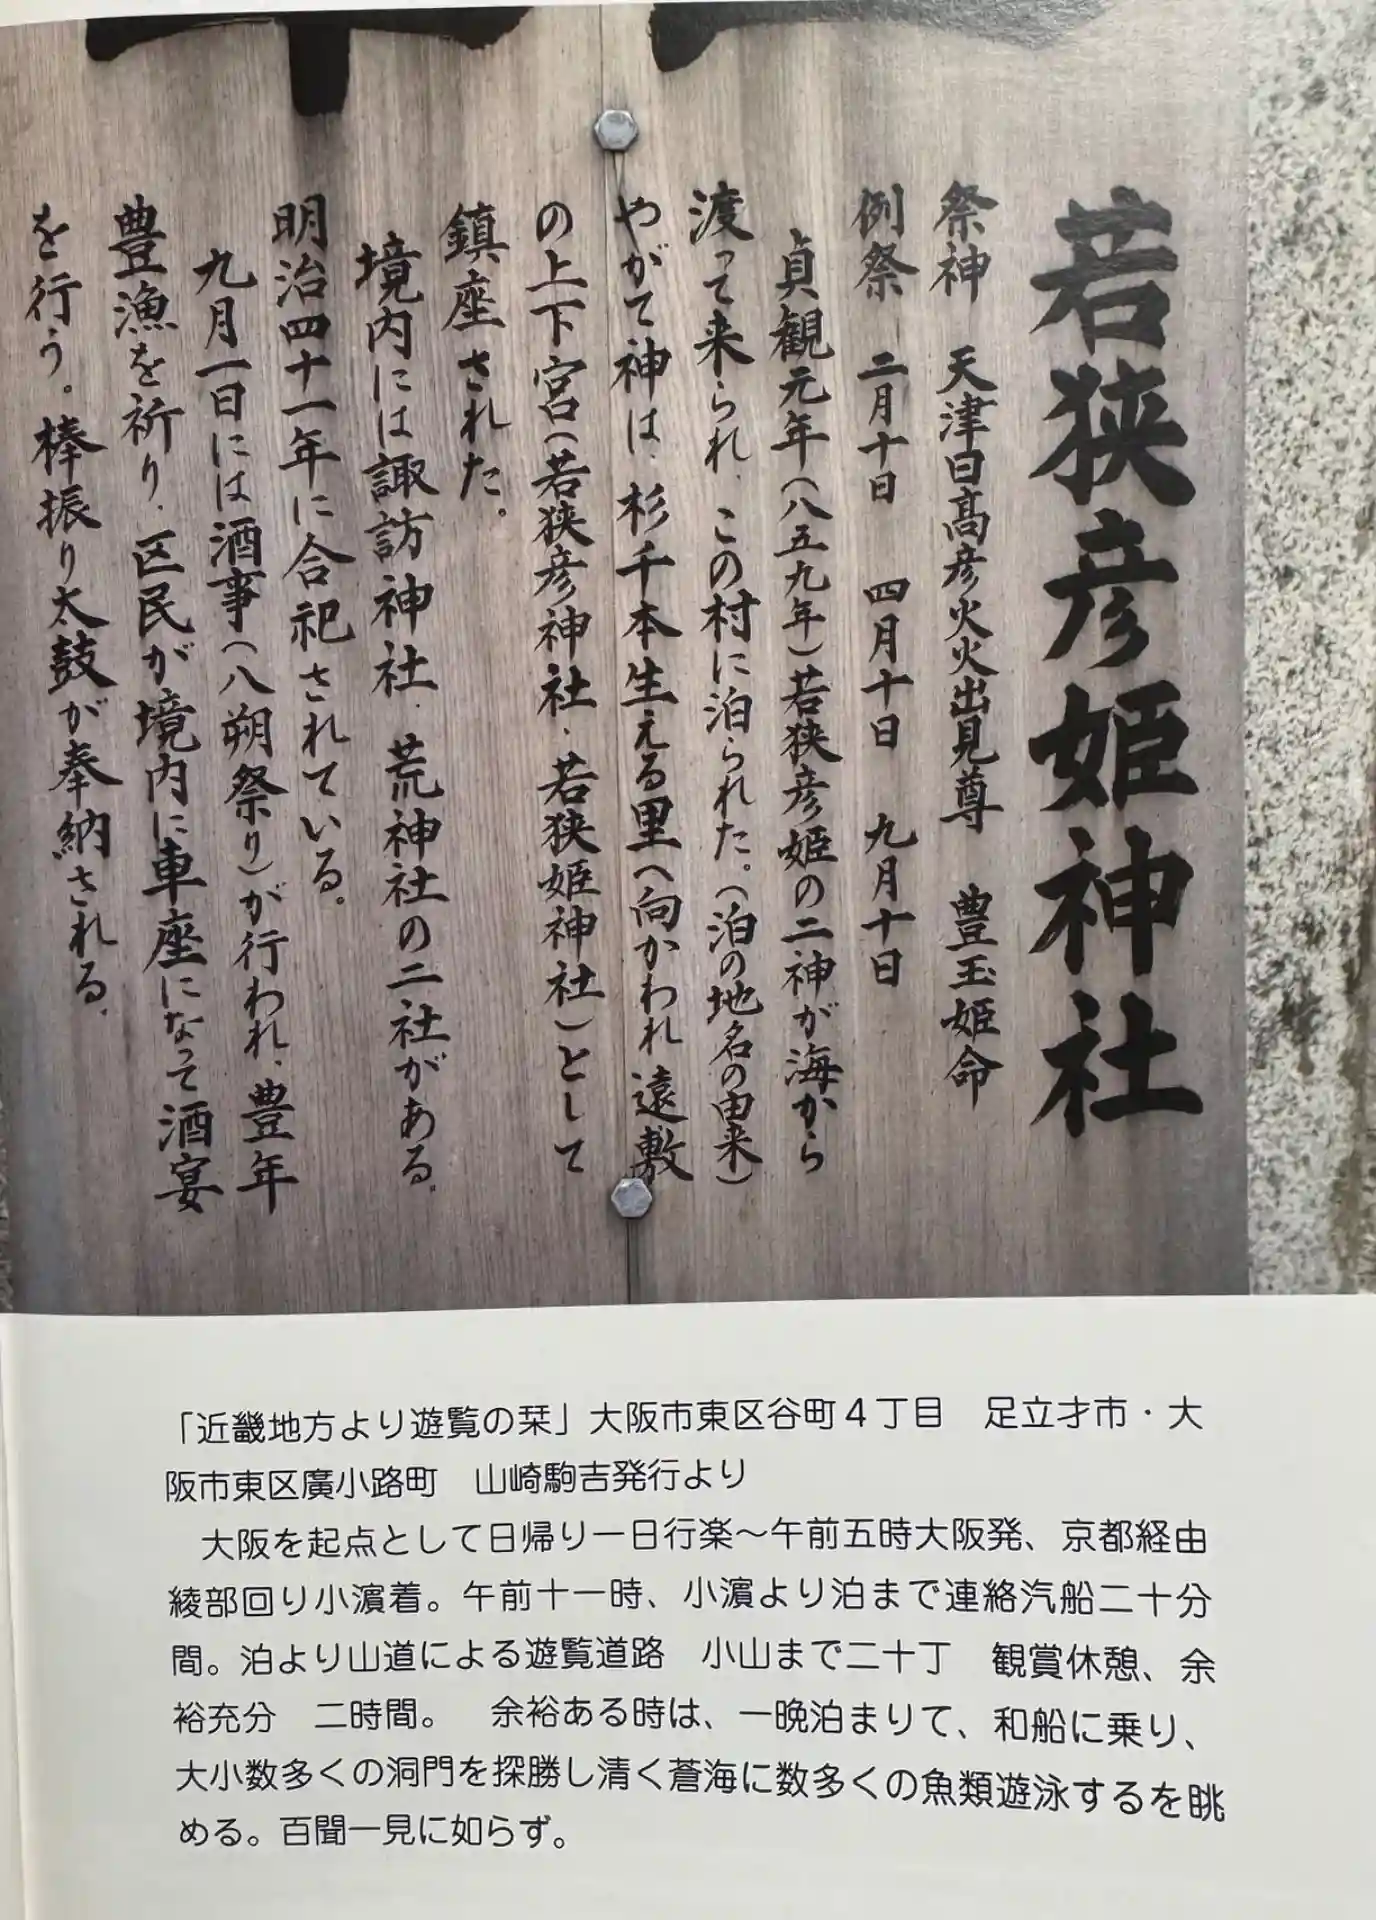 若狭彦姫神社
祭神　天津日高彦火火出見尊　豊玉姫命
例祭　二月十日　四月十日　九月十日
貞観元年（八五九年）若狭彦姫の二神が海から
渡って来られ、この村に泊られた。（泊の地名の由来）
やがて神は、杉千本生える里へ向かわれ遠敷
の上下宮（若狭彦神社・若狭姫神社）として
鎮座された。
境内には諏訪神社・荒神社の二社がある。
明治四十一年に合祀されている。
九月一日には酒事（八朔祭り）が行われ、豊年
豊漁を祈り、区民が境内に車座になって酒宴
を行う。棒振り太鼓が奉納される。
「近畿地方より遊覧の栞」大阪市東区谷町４丁目　足立才市・大
阪市東区廣小路町　山崎駒吉発行より
大阪を起点として日帰り一日行楽～午前五時大阪発、京都経由
綾部回り小濵着。午前十一時、小濵より泊まで連絡汽船二十分
間。泊より山道による遊覧道路　小山まで二十丁　観賞休憩、余
裕充分　二時間。　余裕ある時は、一晩泊まりて、和船に乗り、
大小数多くの洞門を探勝し清く蒼海に数多くの魚類遊泳するを眺
める。百聞一見に如らず。